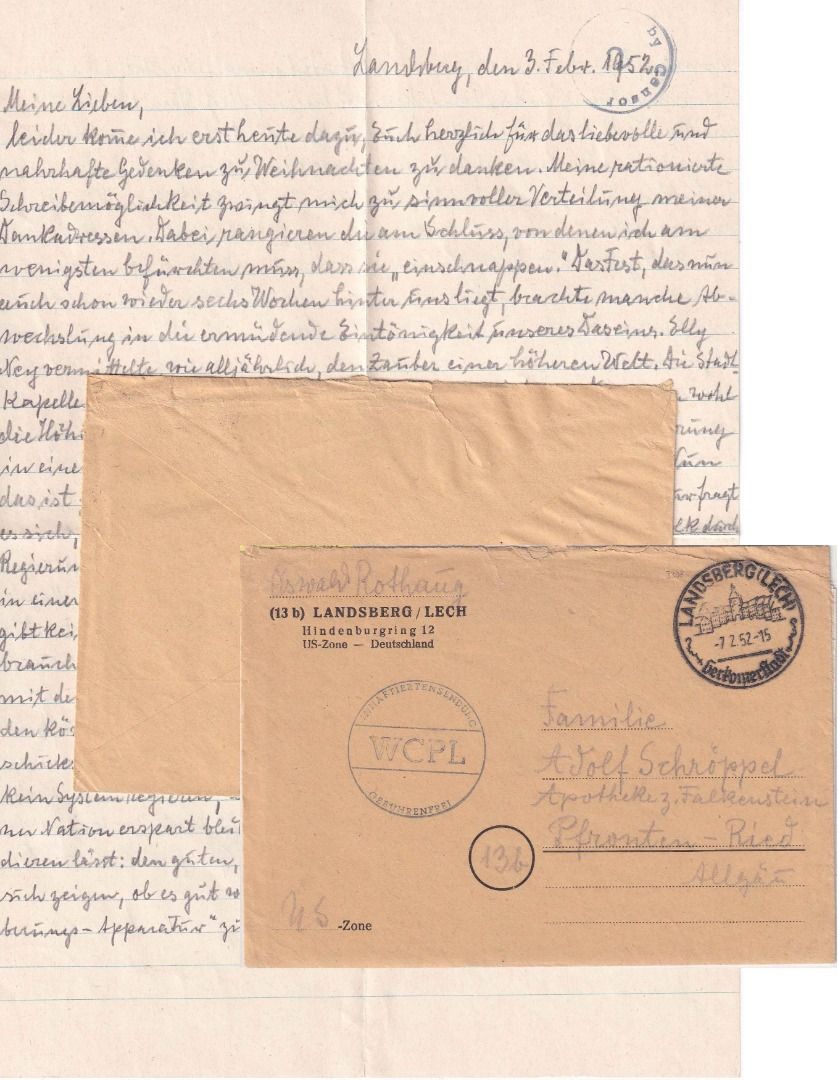 by Censor
Landsberg, den 3. Febr. 1952
Meine Lieben,
leider kome ich erst heute dazu, Euch herzlich für das liebevolle und
nahrhafte Gedenken zu Weihnachten zu danken. Meine rationierte
Schreibemöglichkeit zwingt mich zu sinnvoller Verteilung meiner
Dankadressen. Dabei rangieren die am Schluss, von denen ich am
wenigsten befürchten muss, dass sie „einschnappen." Das Fest, das nun
auch schon wieder sechs Wochen hinter uns liegt, brachte manche Ab-
wechslung in die ermüdende Eintönigkeit unseres Daseins. Elly
Ney vermittelte wie alljährlich, den Zauber einer höheren Welt. Die Stadt-
Kapelle wohl
die Höh rung
in eine Nun
das ist fragt
es sich, durch
Regierun
in einer
gibt kei
brauch
mit de
den kös
schick
kein System regieren,
ner Nation erspart bleu
dieren lässt: den guten,
sich zeigen, ob es gut w
berungs-Apparatur" zu
Oswald Rothaug
(13 b) LANDSBERG / LECH
Hindenburgring 12
US-Zone — Deutschland
LANDSBERG (LECH)
-7.2.52-15
Herkomerstadt
INHAFTIERTENSENDUNG
WCPL
GEBÜHRENFREI
Familie
Adolf Schröppel
Apotheke z. Falkenstein
13b
Pfronten-Ried
Allgäu
US -Zone